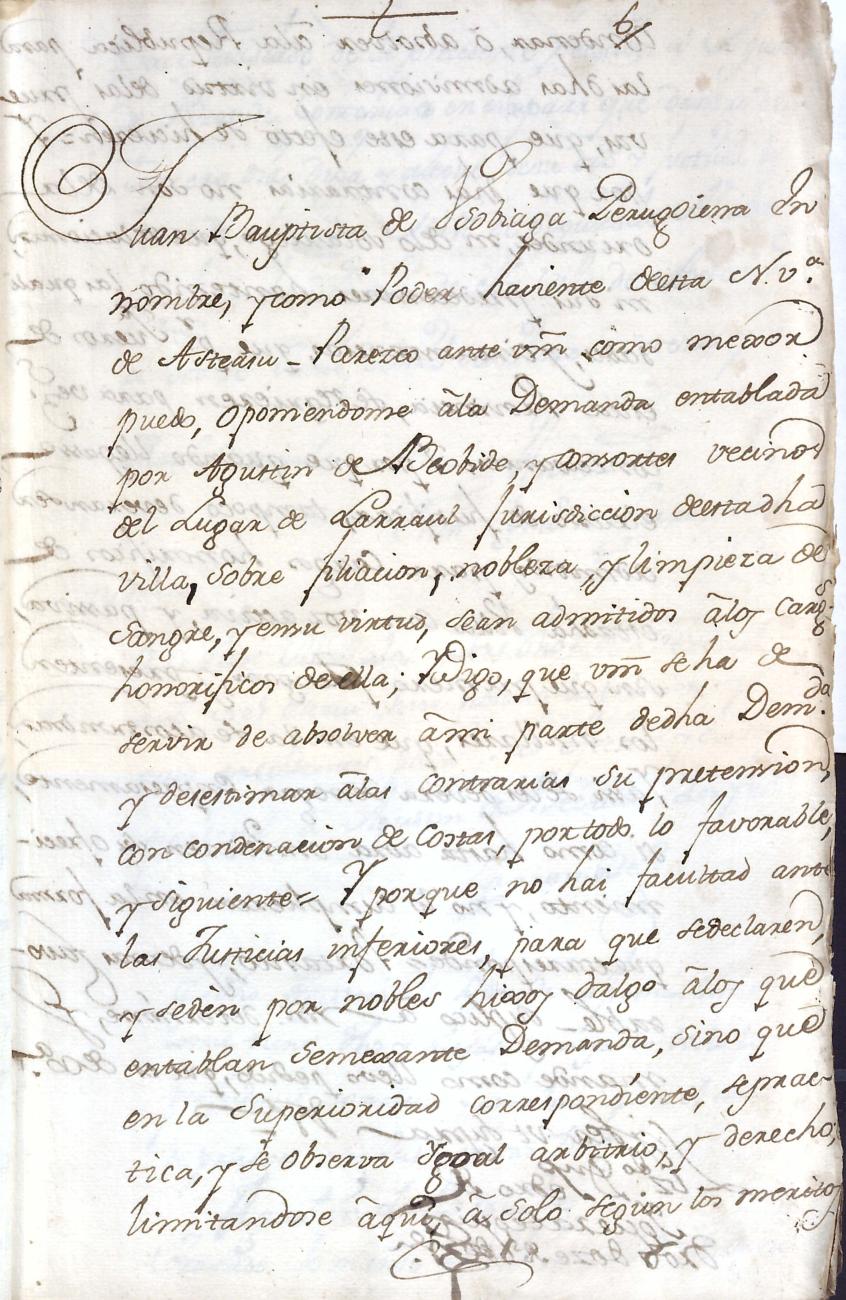 Juan Bauptista de Ysobiaga Perugoiena En
nombre, y como Poder haviente desta N. V.ª
de Asteasu - Parezco ante vm̃, como mexor
puedo, oponiendome ãla Demanda entablada
por Agustin de Beobide, y consortes vecinos
del Lugar de Larraul Jurisdiccion desta dhã
villa, sobre filiacion, nobleza, y limpieza de
Sangre, y ensu virtud, sean admitidos ãlos Carg.s
honorificos de ella; Y Digo, que vm̃ se ha de
servir de absolver ãmi parte dedha Dem.da
y desestimar ãlas contrarias su pretension,
con condenacion de Costas, portodo lo favorable,
y siguiente= Y porque no hai facultad ante
las Justicias inferiores, para que sedeclaren,
y sedèn por nobles hixos dalgo ãlos que
entablan semexante Demanda, sino que
en la Superioridad correspondiente, seprac-
tica, y se observa ygoal arbitrio, y derecho;
limitandose ãquè, ã solo segun los meritos